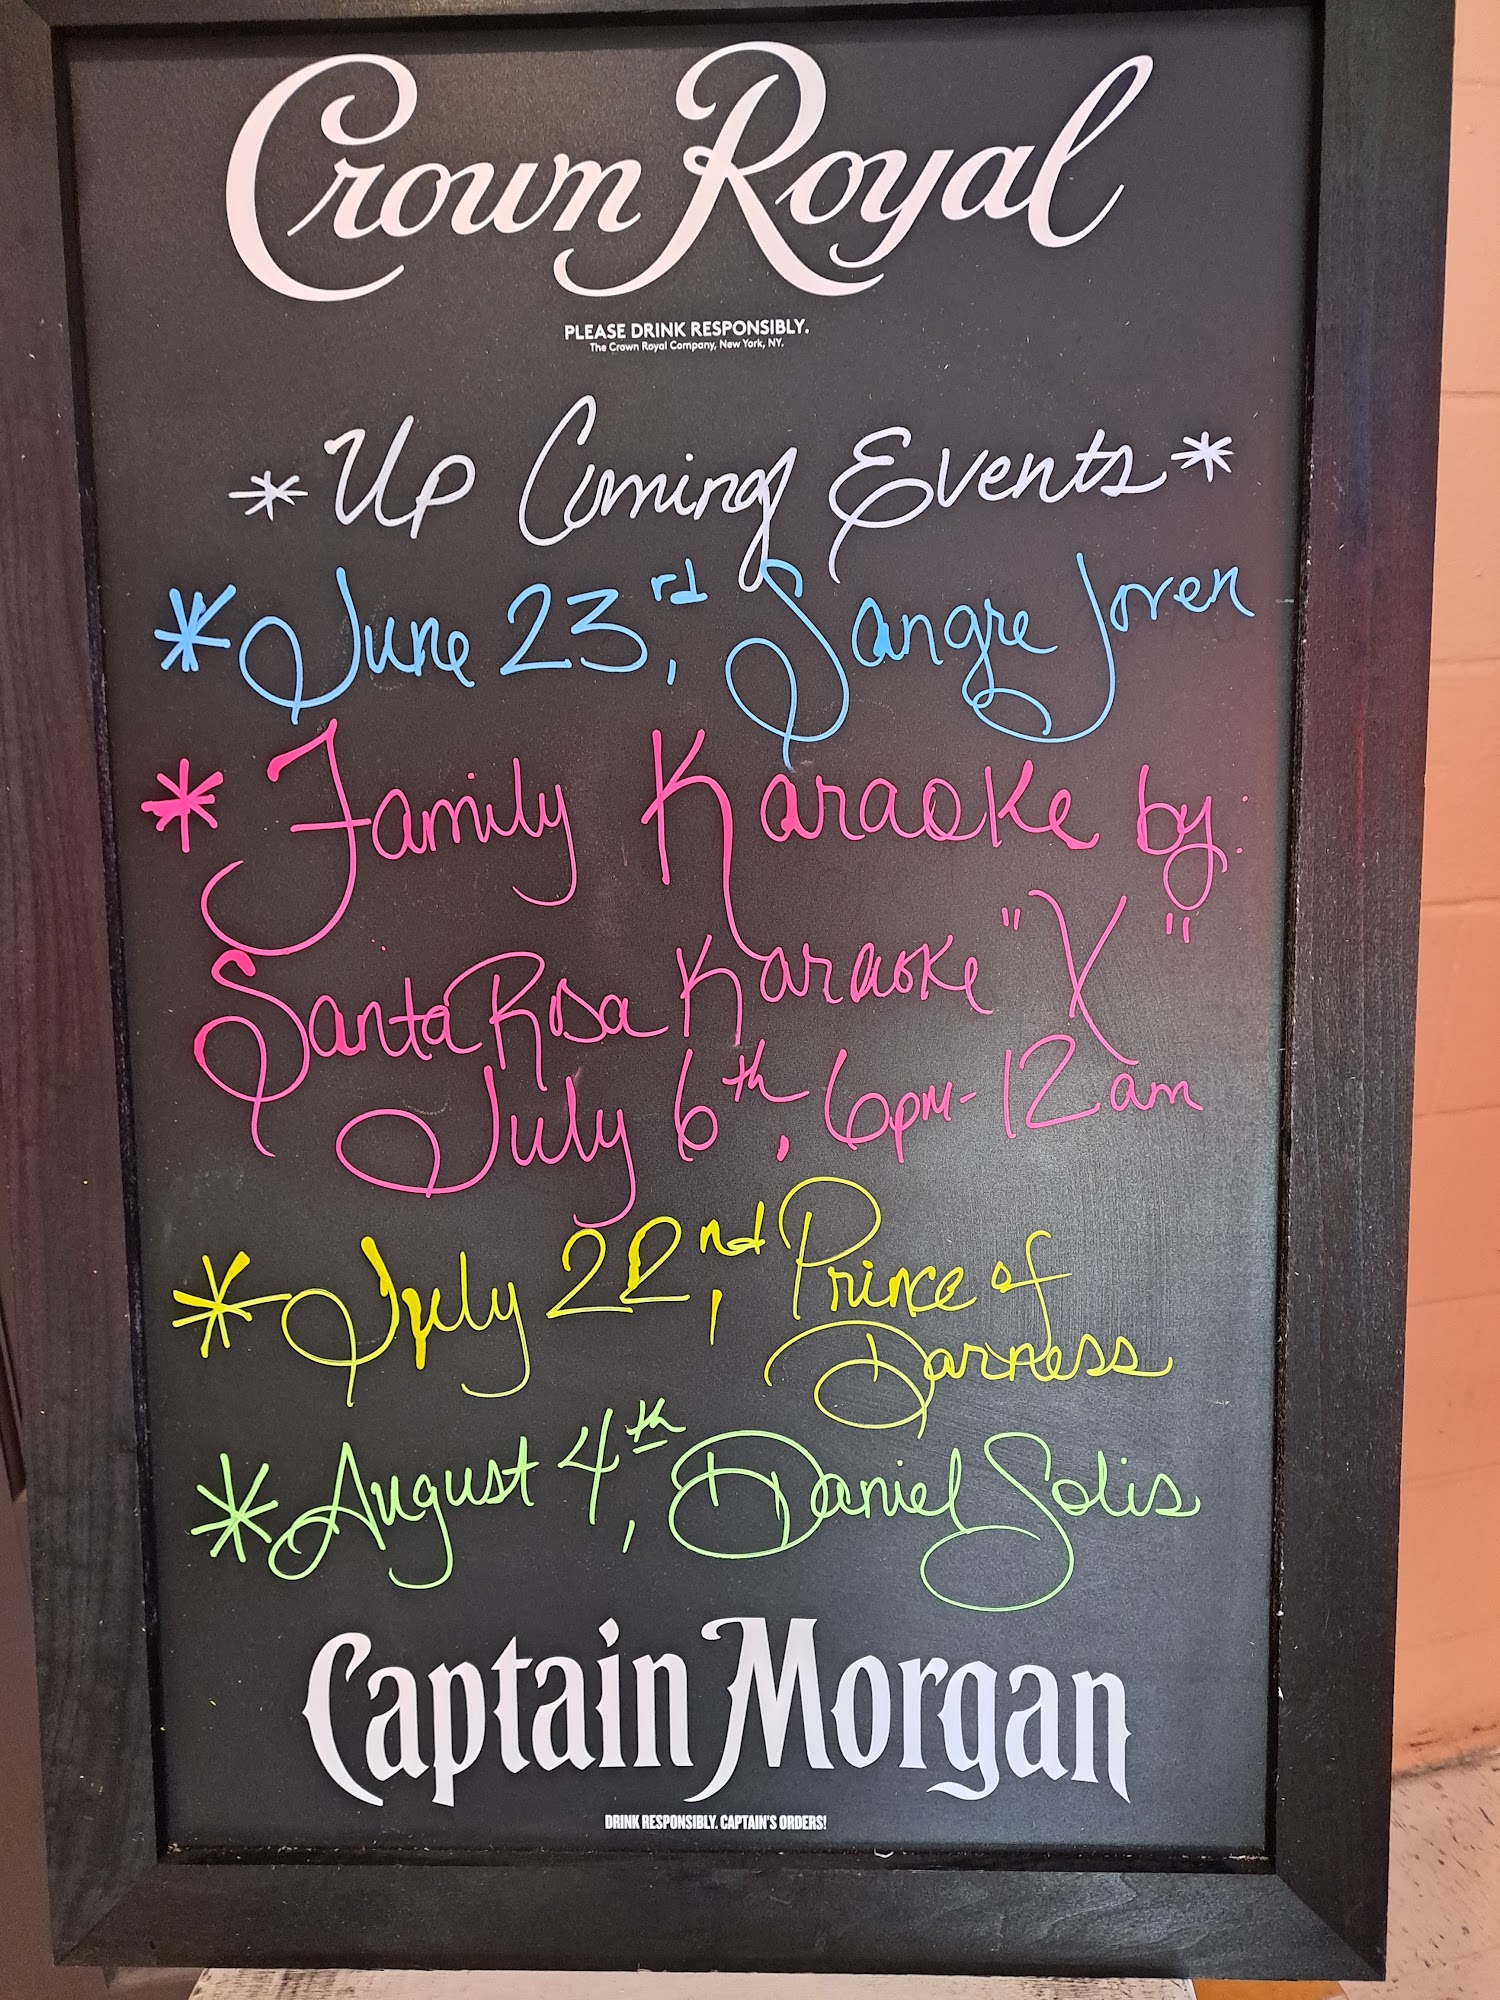 Crown Royal
PLEASE DRINK RESPONSIBLY.
The Crown Royal Company, New York, NY.
* Up Coming Events *
* June 23rd, Sangre Joven
* Family Karaoke by:
Santa Rosa Karaoke "X"
July 6th, 6pm-12am
* July 22nd, Prince of
Darness
* August 4th, Daniel Solis
Captain Morgan
DRINK RESPONSIBLY. CAPTAIN'S ORDERS!